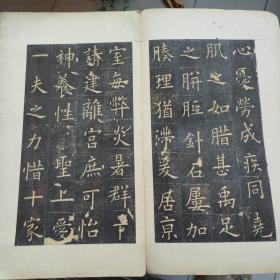 心憂勞成疾同堯
肌之如腊甚禹足
之胼胝針石屢加
腠理猶滯爰居京
室每弊炎暑群下
請建離宮庶可怡
神養性聖上愛
一夫之力惜十家